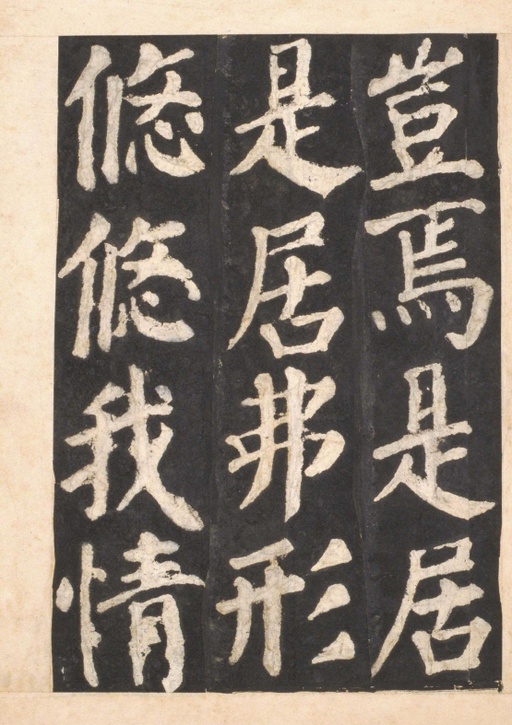 豈焉是居
是居弗形
悠悠我情